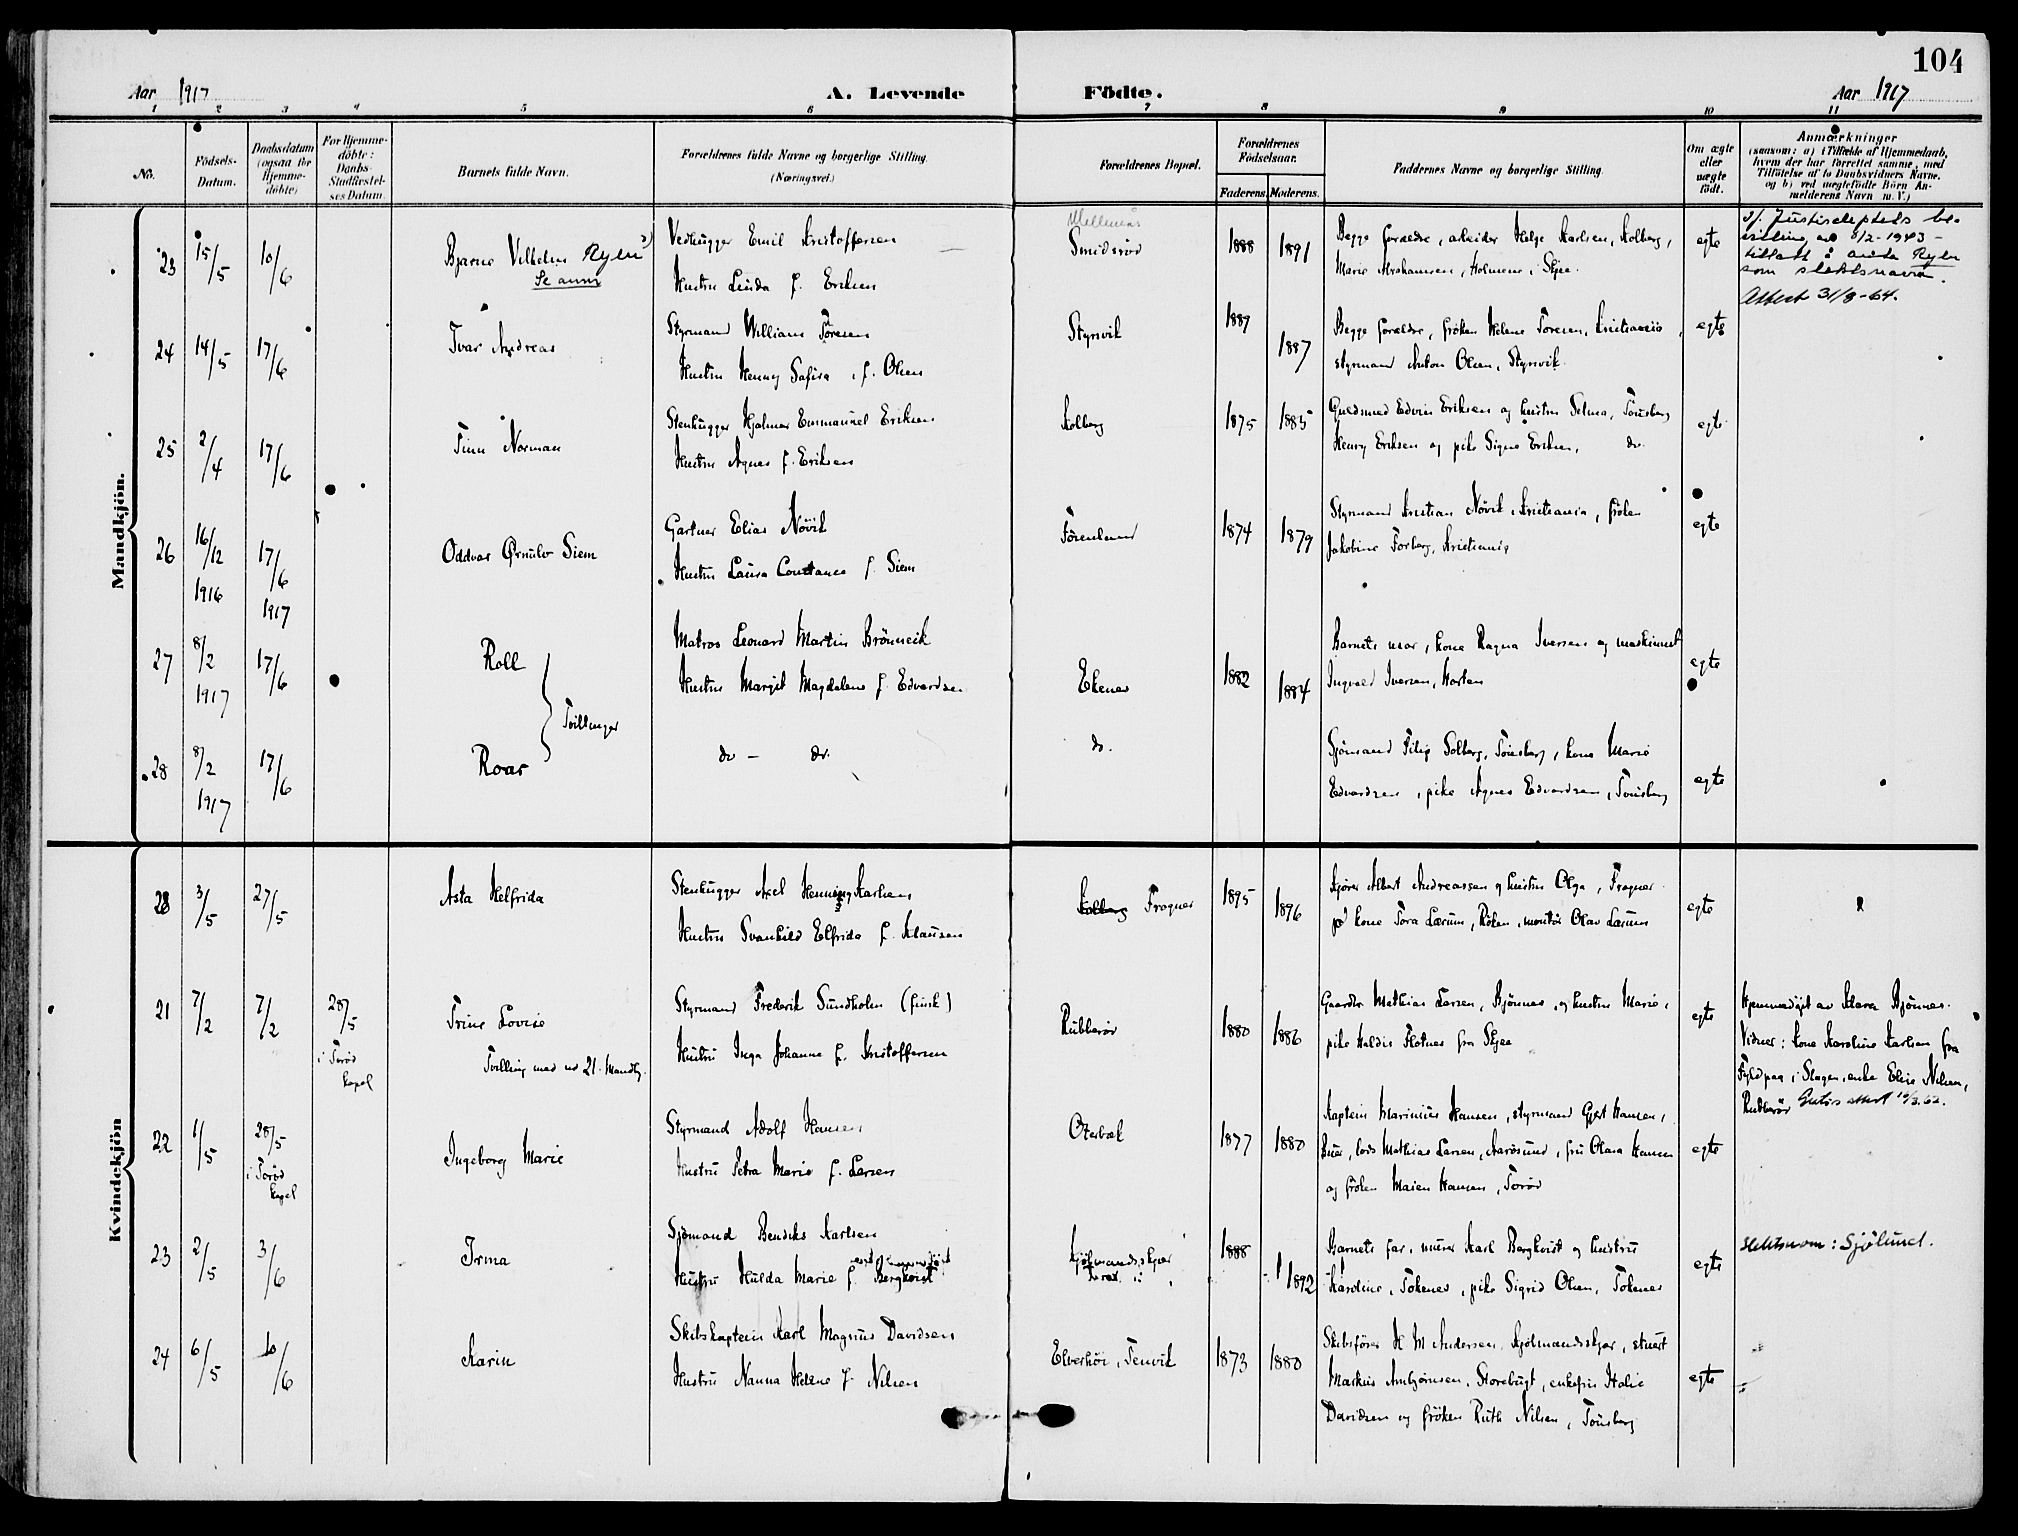 104
Aar 1917
A. Levende Födte.
Aar 1917
1 2 3 4 5 6 7 8 9 10 11
No.
Födsels-Datum.
Daabsdatum (ogsaa for Hjemme-döbte)
For Hjemme-döbte: Daabs-Stadfæstel-ses Datum
Barnets fulde Navn.
Forældrenes fulde Navne og borgerlige Stilling. (Næringsvei.)
Forældrenes Bopæl.
Forældrenes Födselsaar.
Faderens. Moderens.
Faddernes Navne og borgerlige Stilling.
Om ægte eller uægte födt.
Anmærkninger
(saasom: a) i Tilfælde af Hjemmedaab, hvem der har forrettet samme, med Tilföielse af to Daabsvidners Navne, og b) ved uægtefödte Börn An-melderens Navn m. V.)
Mandkjön.
23 15/5 10/6 Bjarne Vilhelm Ryen
Se anm
Vedhugger Emil Kristoffersen
Hustru Linda f. Eriksen
Smidsrød 1888 1891
Begge forældre, arbeider Helge Karlsen, Solberg,
Marie Abrahamsen, Holmene i Skjee.
egte
Attest 31/8-64.
24 14/5 17/6 Ivar Andreas
Styrmand William Toresen
Hustru Henny Safira, f. Olsen
Styrsvik 1889 1887
Begge forældre, frøken Helene Toresen, Kristiania,
styrmand Anton Olsen, Styrsvik.
egte
25 2/4 17/6 Finn Norman
Stenhugger Hjalmar Emmanuel Eriksen
Hustru Agnes f. Eriksen
Solberg 1875 1885
Guldsmed Edvin Eriksen og hustru Selma, Tönsberg
Henry Eriksen og pike Signe Eriksen, do
egte
26 16/12 1916 17/6 1917 Oddvar Ørnulv Siem
Gartner Elias Növik
Hustru Laura Constance f. Siem
1874 1879
Styrmand Kristian Növik, Kristiania, frøken
Jakobine Forberg, Kristiania
egte
27 8/2 1917 17/6 Rolf
Matros Leonard Martin Brönnvik
Hustru Margit Magdalene f. Edvardsen
Ekenes 1882 1884
Barnets mor, kone Ragna Iversen og maskinist
Ingvald Iversen, Horten
egte
Tvillinger
28 8/2 1917 17/6 Roar
do — do.
do.
Sjömand Filip Solberg, Tönsberg, kone Marie
Edvardsen, pike Agnes Edvardsen, Tönsberg
egte
Kvindekjön
28 3/5 27/5 Asta Helfrida
Stenhugger Axel Henning Karlsen
Hustru Svanhild Elfrida f. Klausen
Solberg Frogner 1895 1896
Kjører Albert Andreassen og hustru Olga, Frogner
kone Tora Lærum, Röken, montör Olav Lærum
egte
21 7/2 7/2 28/5 i Torød kapel Trine Lovise
Tvilling med no 21. Mandkj.
Styrmand Frederik Sundholm (finsk)
Hustru Inga Johanne f. Kristoffersen
Rubberød 1880 1886
Gaardbr Mathias Larsen, Bjönnes, og hustru Marie,
pike Haldis Flotnes fra Skjee
egte
Hjemmedöpt av Klara Bjönnes.
Vidner: kone Karoline Karlsen fra
i Slagen, enke Elise Nilsen,
Rubberød
22 1/5 28/5 i Torød kapel Ingeborg Marie
Styrmand Adolf Hansen
Hustru Petra Marie f. Larsen
Oterbæk 1877 1880
Kaptein Marinius Hansen, styrmand Gjert Hansen,
Buer, lods Mathias Larsen, Aarøsund, fru Olava Hansen
og fröken Maren Hansen, Torød
egte
23 2/5 3/6 Irma
Sjömand Bendiks Karlsen
Hustru Hulda Marie f. Bergkvist
Kjölmandsskjær
1888 1892
Barnets far, murer Karl Bergkvist og hustru
Karoline, Tokenes, pike Sigrid Olsen, Tokenes
egte
slektsnavn: Sjölund.
24 6/5 10/6 Karin
Skibskaptein Karl Magnus Davidsen
Hustru Nanna Helene f. Nilsen
Elverhöi, Tenvik 1873 1880
Skibsförer H M Andersen, Kjölmandsskjær, stuert
Markus Ambjörnsen, Storebugt, enkefru Halie
Davidsen og fröken Ruth Nilsen, Tönsberg
egte